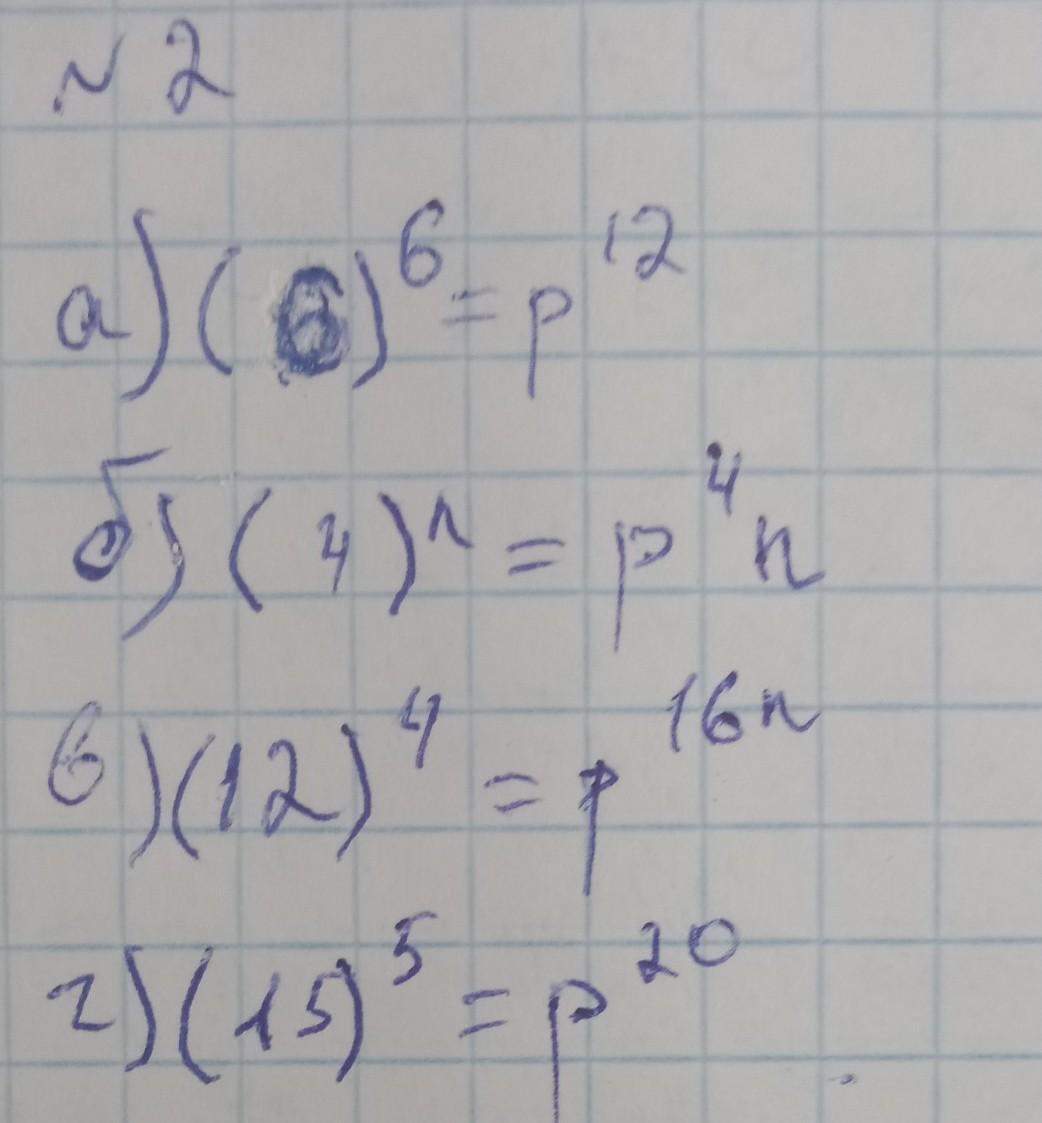 № 2
а) (6)⁶ = p¹²
б) (4)ⁿ = p⁴n
в) (12)⁴ = p¹⁶ⁿ
г) (15)⁵ = p²⁰